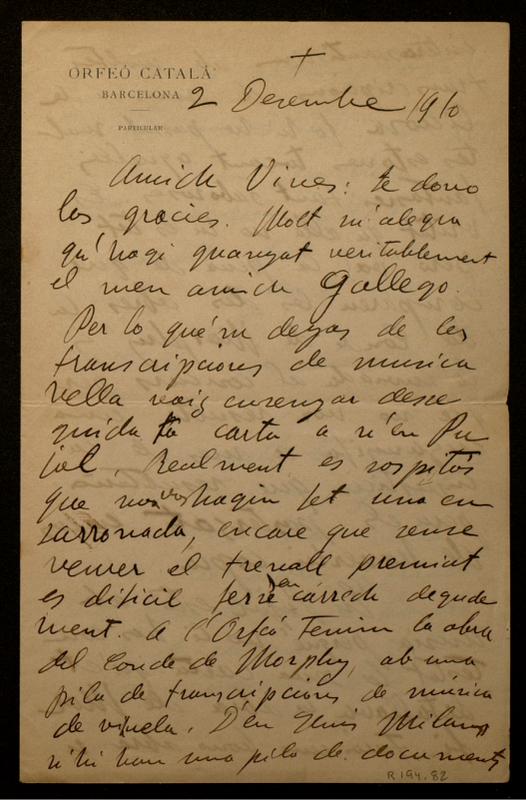 ORFEÓ CATALÁ
BARCELONA
PARTICULAR
2 Desembre 1910
Amich Vives: te dono
las gracies. Molt m'alegra
qu'hagi guanyat veritablement
el meu amich Gallego.
Per lo qué'm deyas de les
transcripcions de musica
vella vaig ensenyar dese
guida ta carta a n'en Pu
jol. Realment es sospitós
que nos hagin fet una en
sarronada, encare que sense
veurer el trevall premiat
es dificil ferse'n cárrech deguda
ment. A l'Orfeó tenim la obra
del Conde de Morphy, ab una
pila de transcripcions de música
de vihuela. D'en Lluis Milan
n'hi han una pila de documents
R 194.82